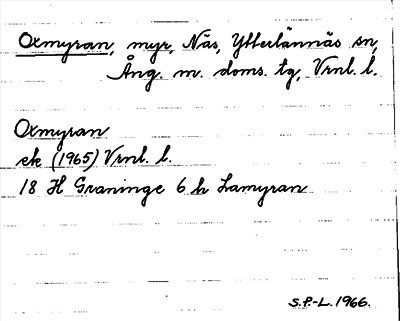 Oxmyran, myr, Näs, Ytterlännäs sn,
Ång. m. doms. tg, Vrnl. l.
Oxmyran
ek (1965) Vrnl. l.
18 H Graninge 6 h Lamyran
S.P.-L. 1966.